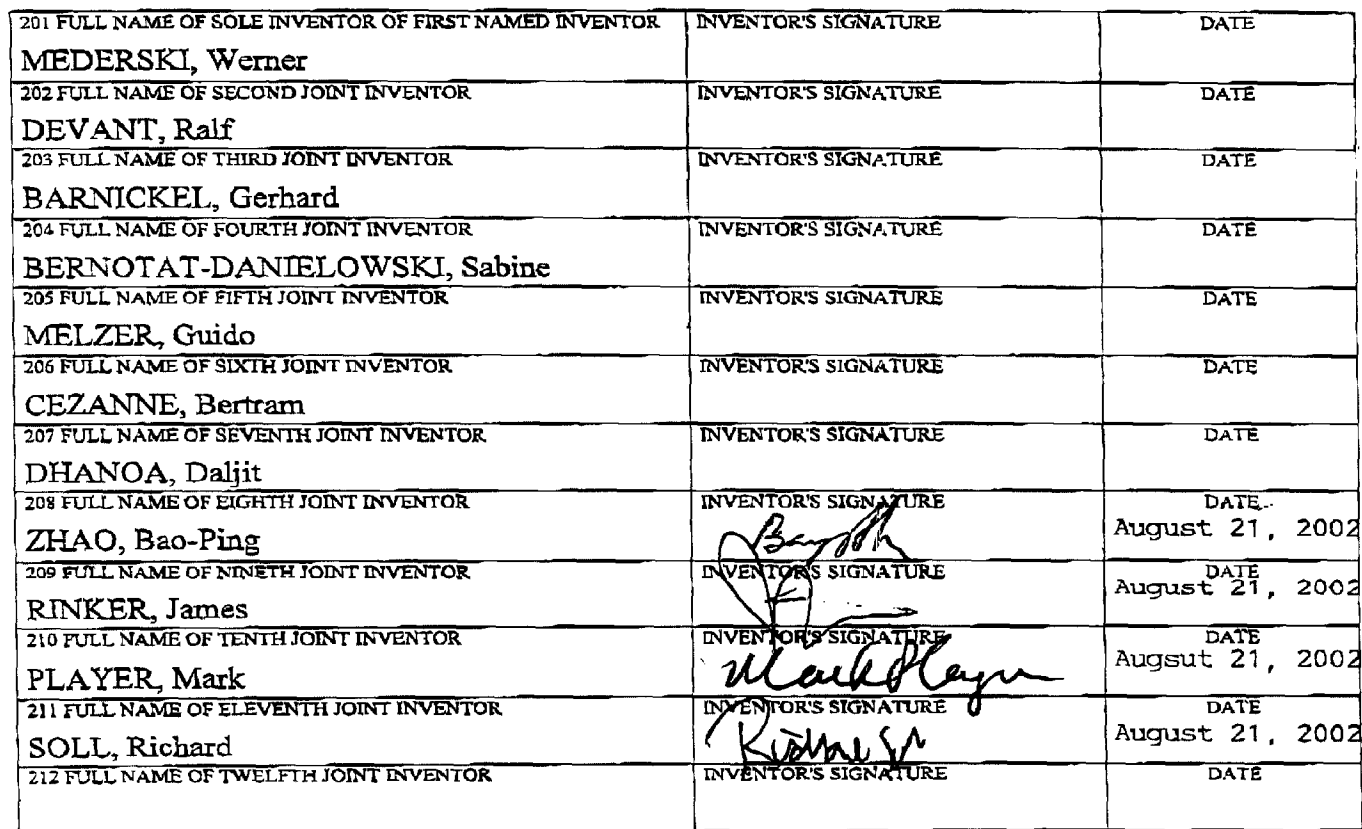 201 FULL NAME OF SOLE INVENTOR OF FIRST NAMED INVENTOR INVENTOR'S SIGNATURE DATE
MEDERSKI, Werner
202 FULL NAME OF SECOND JOINT INVENTOR INVENTOR'S SIGNATURE DATE
DEVANT, Ralf
203 FULL NAME OF THIRD JOINT INVENTOR INVENTOR'S SIGNATURE DATE
BARNICKEL, Gerhard
204 FULL NAME OF FOURTH JOINT INVENTOR INVENTOR'S SIGNATURE DATE
BERNOTAT-DANIELOWSKI, Sabine
205 FULL NAME OF FIFTH JOINT INVENTOR INVENTOR'S SIGNATURE DATE
MELZER, Guido
206 FULL NAME OF SIXTH JOINT INVENTOR INVENTOR'S SIGNATURE DATE
CEZANNE, Bertram
207 FULL NAME OF SEVENTH JOINT INVENTOR INVENTOR'S SIGNATURE DATE
DHANOA, Daljit
208 FULL NAME OF EIGHTH JOINT INVENTOR INVENTOR'S SIGNATURE DATE
ZHAO, Bao-Ping August 21, 2002
209 FULL NAME OF NINETH JOINT INVENTOR INVENTOR'S SIGNATURE DATE
RINKER, James August 21, 2002
210 FULL NAME OF TENTH JOINT INVENTOR INVENTOR'S SIGNATURE DATE
PLAYER, Mark Mark Player Augsut 21, 2002
211 FULL NAME OF ELEVENTH JOINT INVENTOR INVENTOR'S SIGNATURE DATE
SOLL, Richard August 21, 2002
212 FULL NAME OF TWELFTH JOINT INVENTOR INVENTOR'S SIGNATURE DATE